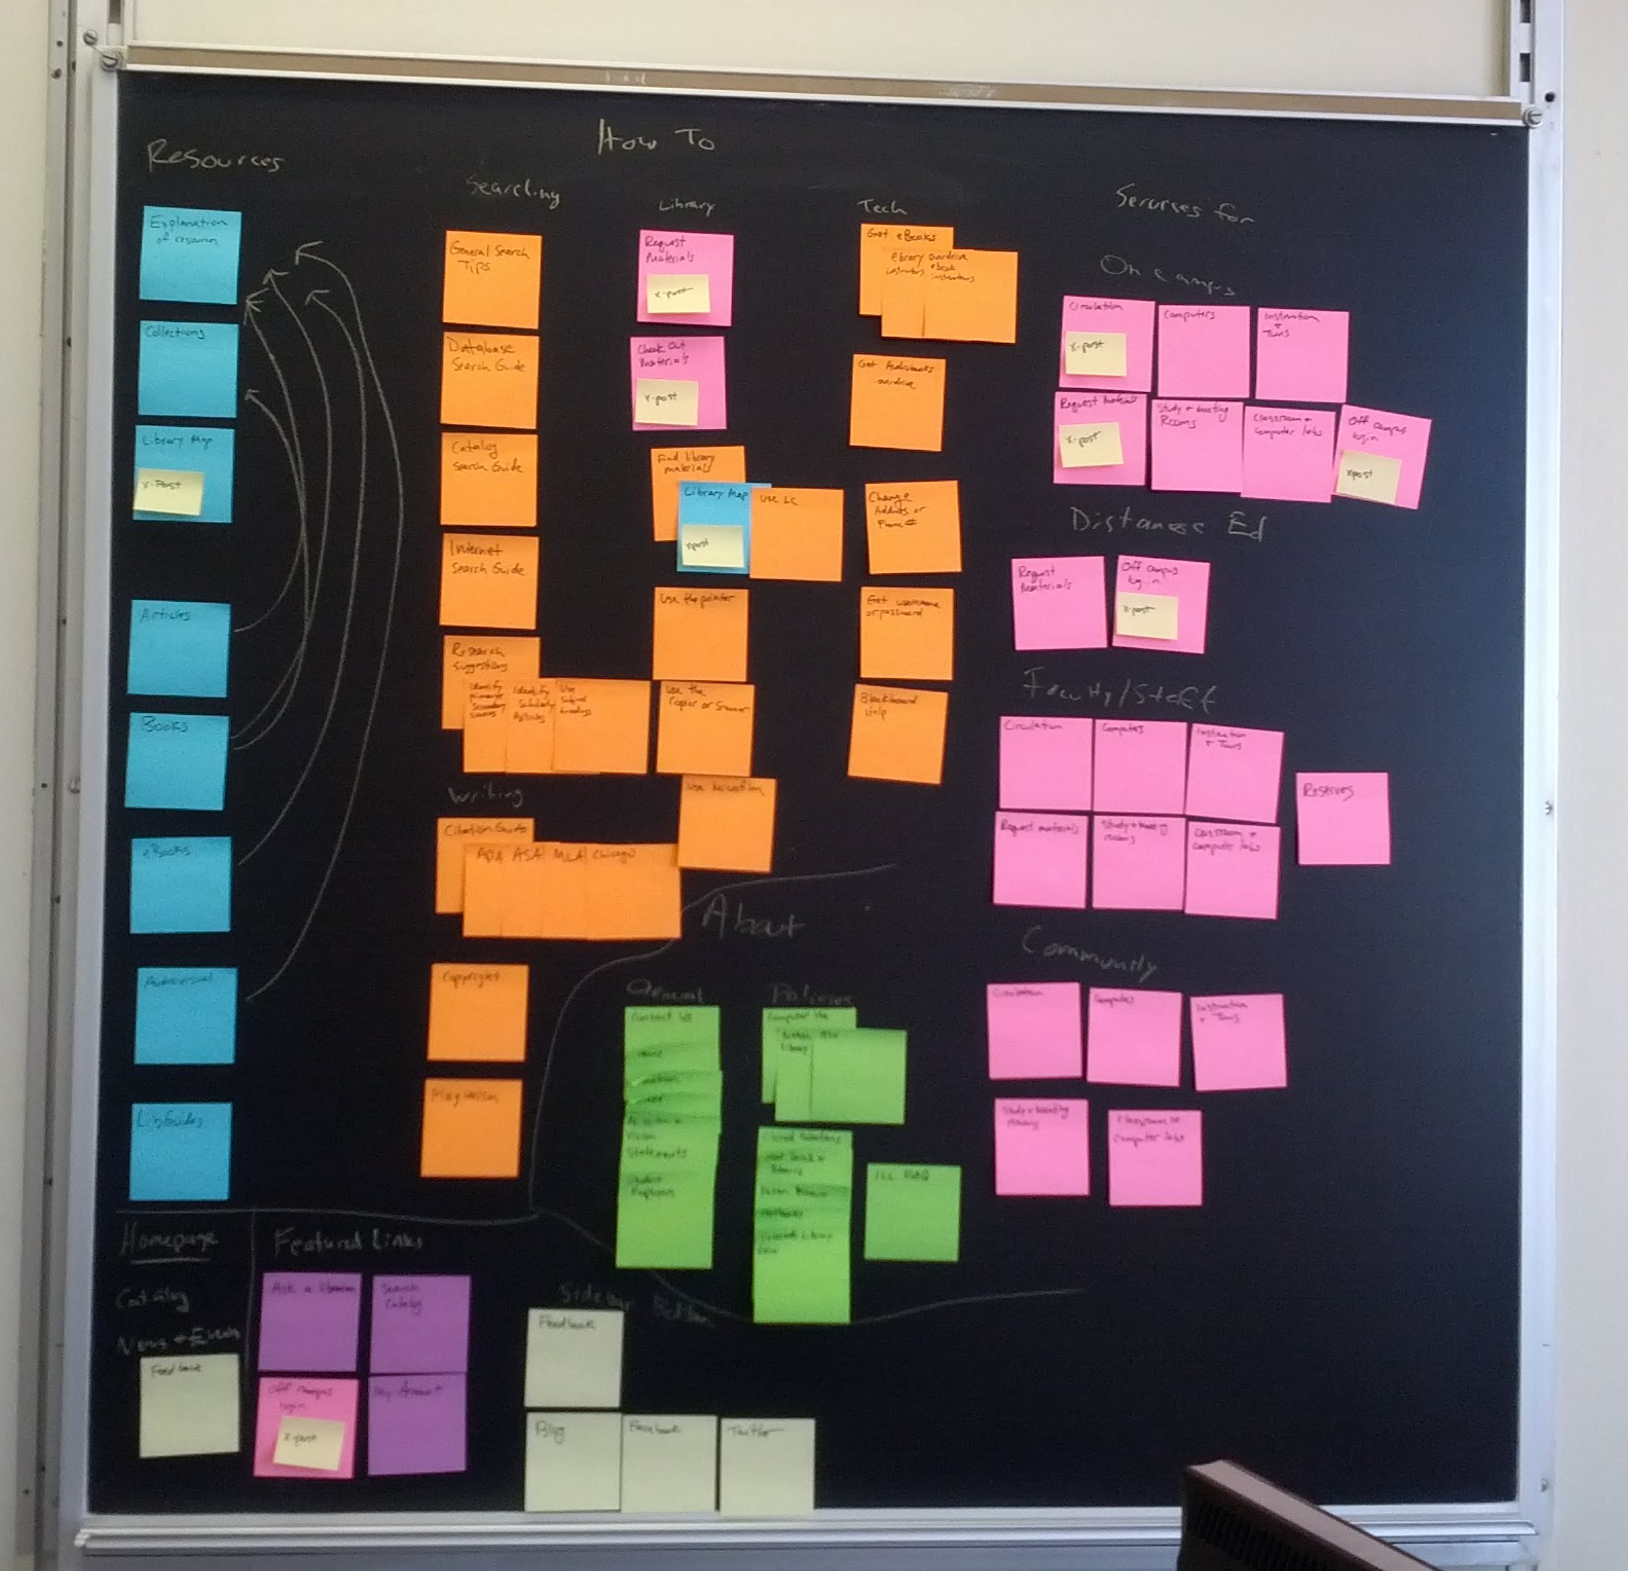 Resources
Explanation
of resources
Collections
Library Map
x-Post
Articles
Books
eBooks
Audiovisual
LibGuides
How To
Searching
General Search
Tips
Database
Search Guide
Catalog
Search Guide
Internet
Search Guide
Research
Suggestions
Identify
primary
Secondary
sources
Identify
Scholarly
Articles
Use
Subject
headings
Writing
Citation Guide
APA
ASA
MLA
Chicago
Copyright
Plagiarism
Library
Request
Materials
x-post
Check Out
Materials
x-post
Find library
materials
Library Map
xpost
Use LC
Use the printer
Use the
Copier or Scanner
Use
Tech
Get eBooks
ebrary
overdrive
ebook
Get Audiobooks
overdrive
Change
Address or
Phone #
Get username
or password
Blackboard
Help
Services for
On campus
Circulation
x-post
Computers
Instruction
+ Tours
Request Materials
x-post
Study + Meeting
Rooms
Classroom +
Computer labs
Off campus
login
xpost
Distance Ed
Request
Materials
Off campus
log-in
x-post
Faculty/Staff
Circulation
Computers
Instruction
+ Tours
Reserves
Request materials
Study + Meeting
rooms
Classroom +
Computer labs
Community
Circulation
Computers
Instruction
+ Tours
Study + Meeting
rooms
Classroom +
Computer labs
About
General
Contact Us
Statements
Policies
Computer Use
Library
ILL FAQ
Homepage
Catalog
News + Events
Feedback
Featured Links
Ask a librarian
Search
Catalog
Off campus
login
x-post
My Account
Sidebar
Feedback
Blog
Facebook
Twitter